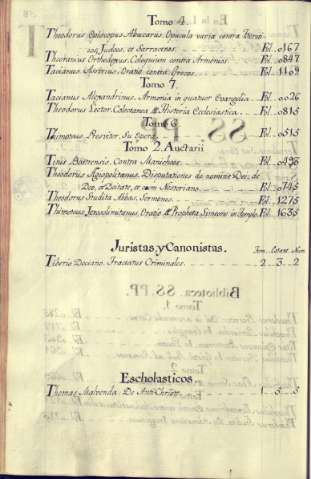 Tomo 4.
Theodorus Episcopus Abucaras, Opuscula varia contra
Judæos, et Sarracenos. Fol. 0167
Theorianus Orthodoxus, Coloquium contra Armenios. Fol. 0847
Tacianus Assirius, Oratio contra Grecos. Fol. 1109
Tomo 7.
Tacianus Alexandrinus, Armonia in quatuor Evangelia. Fol. 0026
Theodorus Lector, Colectanea Historia Ecclesiastica. Fol. 0815
Tomo 6.
Thimoteus Presviter, Su Opera. Fol. 0515
Tomo 2. Auctarii
Titus Bostrensis, Contra Manicheos. Fol. 0493
Theodorus Agiopolitanus, Disputationes de nominis Dei; de
Deo, et cum Nestoriano. Fol. 0745
Theodorus Studita Abbas, Sermones. Fol. 1275
Thimoteus Jerosolimitanus, Oratio Propheta Simeonis in templo. Fol. 1635
Juristas y Canonistas. Num.
Tiberio Deciano. Tractatus Criminales. 2 3 2
Escholasticos.
Thomas Malvenda. De Anti-Christo. 1 5 5